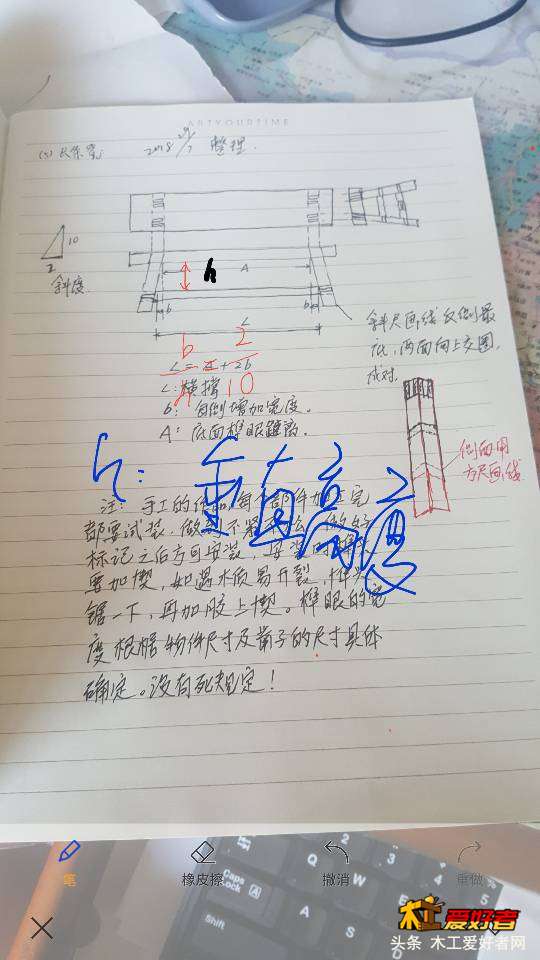 ARTYOURTIME
2018 29/7 整理.
10
2
斜度.
h
A
b
b
L
b 2
L = A + 2b
h 10
L: 横撑
b: 每侧增加宽度.
A: 底面榫眼距离.
斜尺画线仅侧最
底,两面向上交圈,
成对.
侧面用
方尺画线
h: 垂直高度
注: 手工的作品,每个部件加工完
都要试装.
标记之后方可安装.
要加楔,如遇木质易开裂,榫头
锯一下,再加胶上楔。榫眼的宽
度根据物件尺寸及凿子的尺寸具体
确定。没有死规定!
笔
橡皮擦
撤消
重做
Caps Lock
A
Q
W
A
S
D
Shift
木工爱好者
头条 木工爱好者网